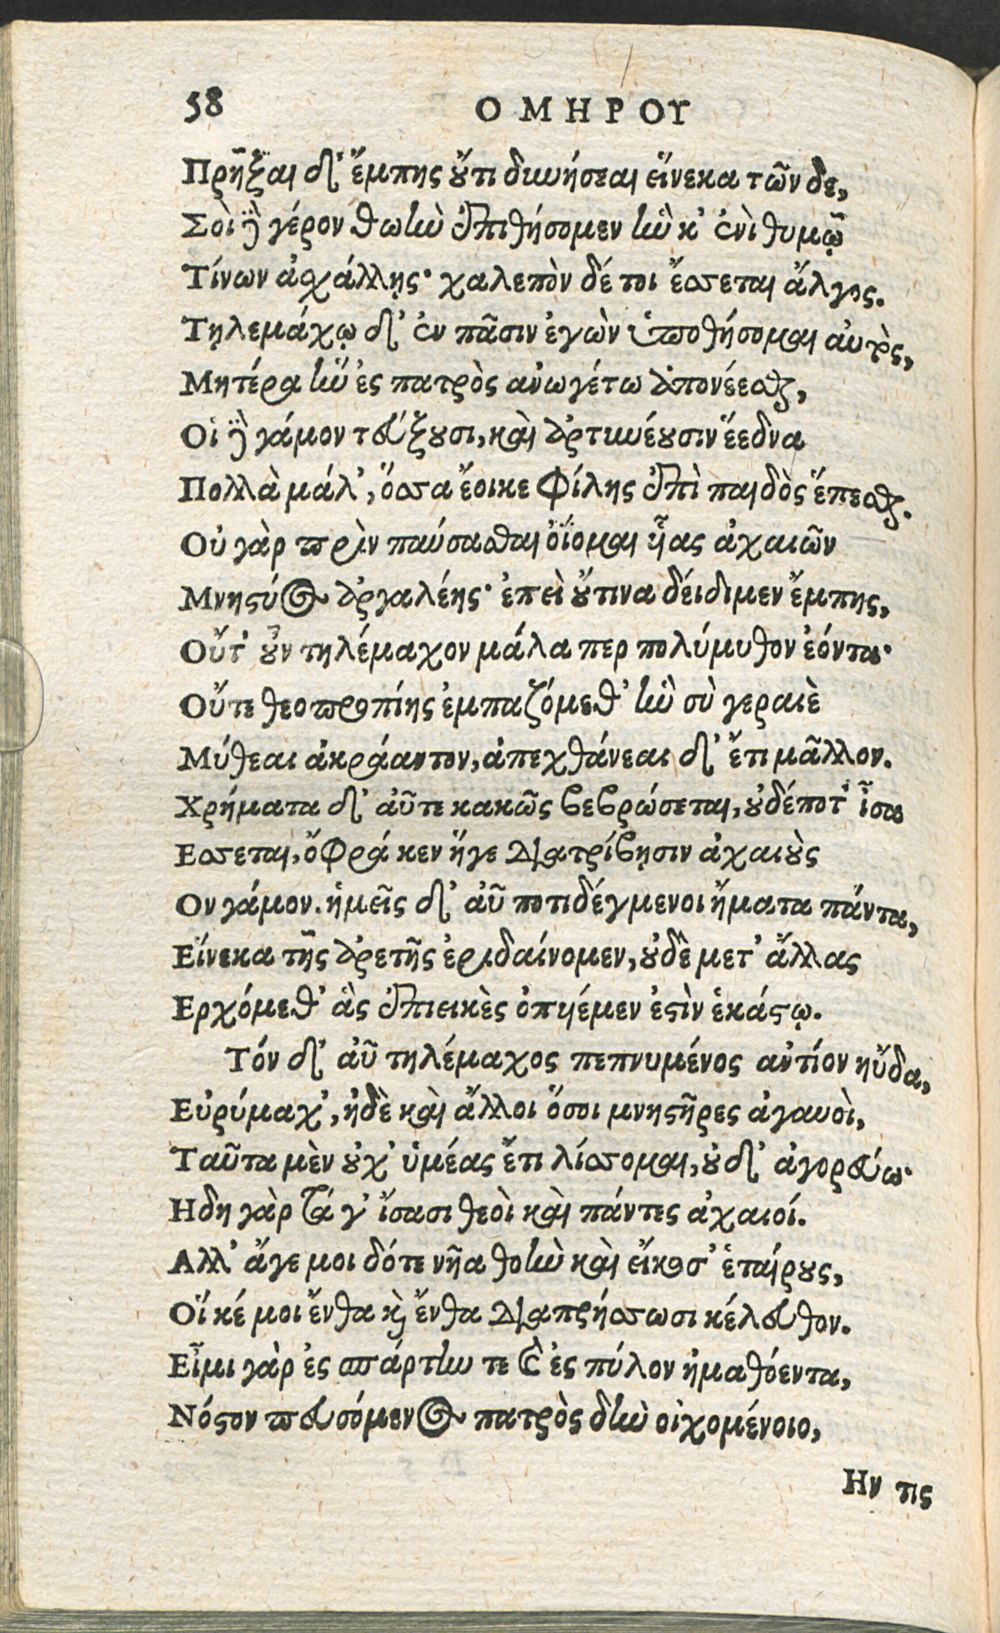 58 ΟΜΗΡΟΥ
Πρῆξαι δ' ἔμπης οὔτι δυνήσεαι εἵνεκα τῶν δε,
Σοὶ δὲ γέρον θωὴν ἐπιθήσομεν ἣν κ' ἐνὶ θυμῷ
Τίνων ἀσχάλλῃς· χαλεπὸν δέ τοι ἔσσεται ἄλγος.
Τηλεμάχῳ δ' ἐν πᾶσιν ἐγὼν ὑποθήσομαι αὐτὸς,
Μητέρα ἣν ἐς πατρὸς ανωγέτω ἀπονέεσθαι,
Οἱ δὲ γάμον τεύξουσι, καὶ ἀρτυνέουσιν ἕεδνα
Πολλὰ μάλ', ὅσσα ἔοικε φίλης ἐπὶ παιδὸς ἕπεσθαι.
Οὐ γὰρ πρὶν παύσασθαι ὀΐομαι ἧας ἀχαιῶν
Μνηστύος ἀργαλέης· ἐπεὶ οὔτινα δείδιμεν ἔμπης,
Οὔτ' οὖν τηλέμαχον μάλα περ πολύμυθον ἐόντα·
Οὔτε θεοπροπίης ἐμπαζόμεθ' ἣν σὺ γεραιὲ
Μύθεαι ἀκράαντον, ἀπεχθάνεαι δ' ἔτι μᾶλλον.
Χρήματα δ' αὖτε κακῶς βεβρώσεται, οὐδέποτ' ἶσα
Εσσεται, ὄφρά κεν ἥγε διατρίβῃσιν ἀχαιοὺς
Ον γάμον. ἡμεῖς δ' αὖ ποτιδέγμενοι ἤματα πάντα,
Εἵνεκα τῆς ἀρετῆς ἐριδαίνομεν, οὐδὲ μετ' ἄλλας
Ερχόμεθ' ἃς ἐπιεικὲς ὀπυιέμεν ἐστὶν ἑκάστῳ.
Τόν δ' αὖ τηλέμαχος πεπνυμένος αντίον ηὔδα,
Εὐρύμαχ', ἠδὲ καὶ ἄλλοι ὅσοι μνηστῆρες ἀγαυοὶ,
Ταῦτα μὲν οὐχ' ὑμέας ἔτι λίσσομαι, οὐδ' ἀγορεύω·
Ηδη γὰρ τά γ' ἴσασι θεοὶ καὶ πάντες ἀχαιοί.
Αλλ' ἄγε μοι δότε νῆα θοὴν καὶ εἴκοσ' ἑταίρους,
Οἵ κέ μοι ἔνθα καὶ ἔνθα διαπρήσσωσι κέλευθον.
Εἶμι γὰρ ἐς σπάρτην τε καὶ ἐς πύλον ἠμαθόεντα,
Νόστον πευσόμενος πατρὸς δὴν οἰχομένοιο,
Ην τις